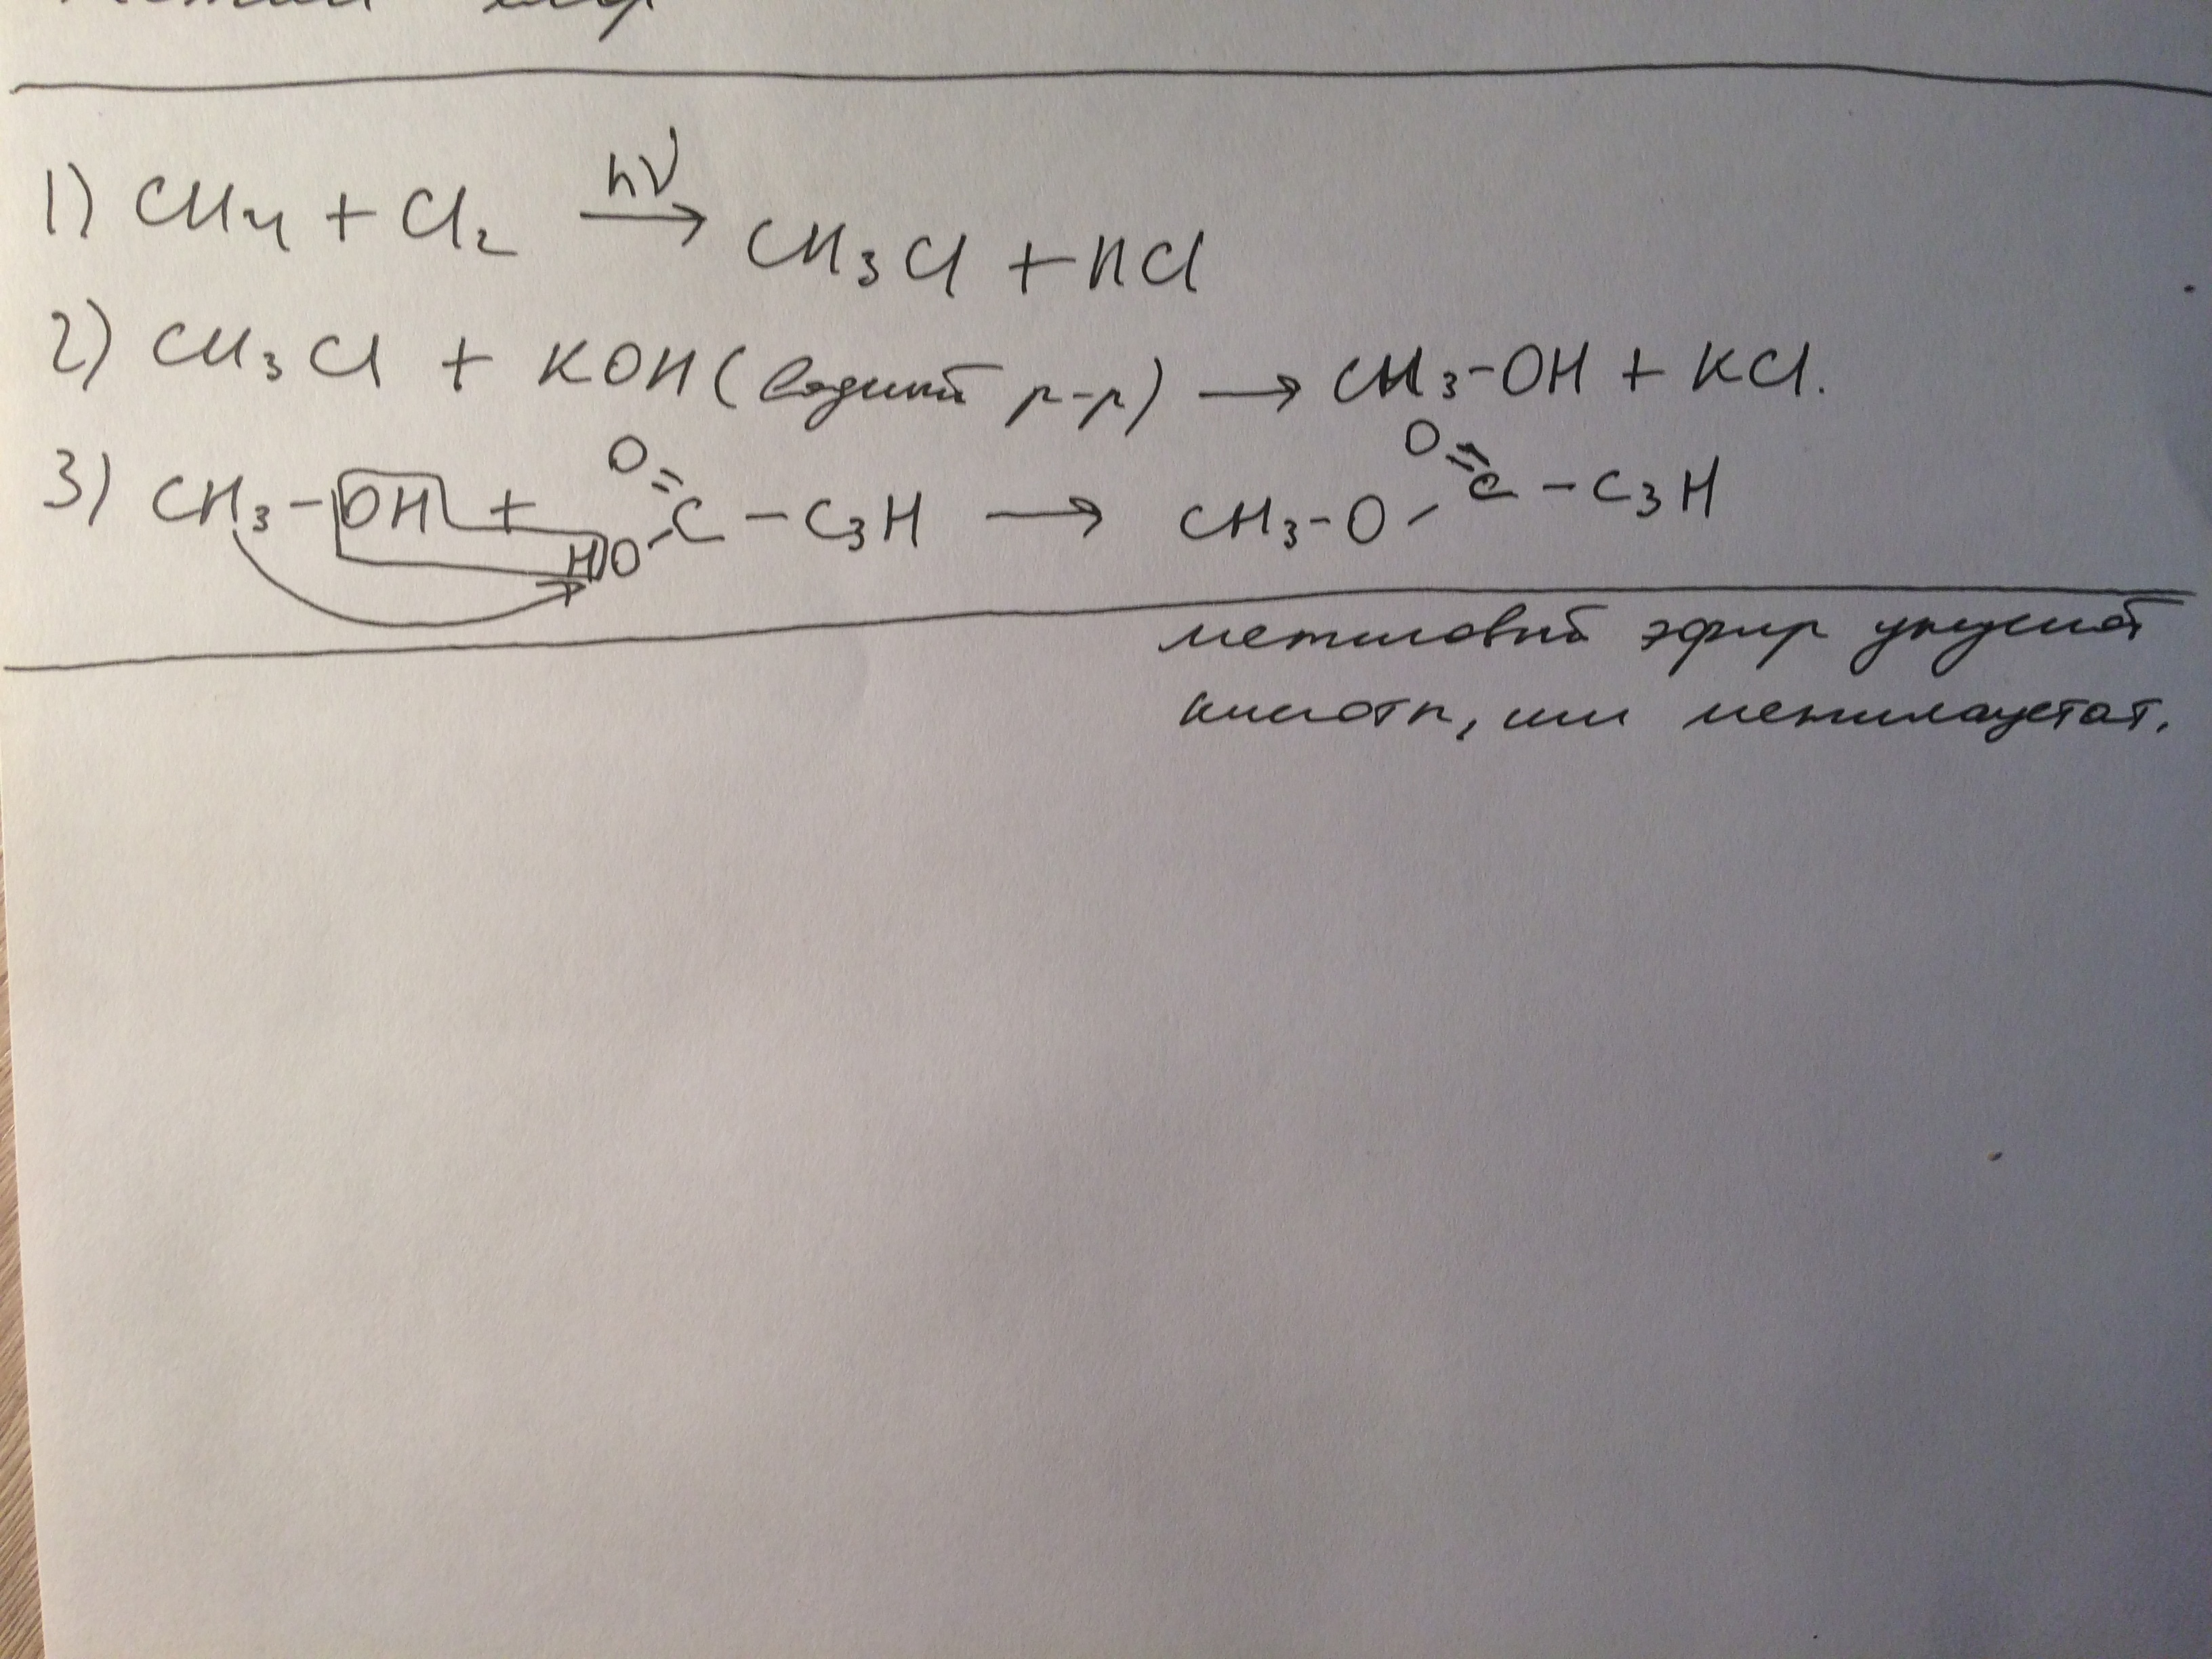 1) CH₄ + Cl₂ hν→ CH₃Cl + HCl
2) CH₃Cl + KOH (водный р-р) → CH₃-OH + KCl.
3) CH₃-OH + HO-C(=O)-C₃H → CH₃-O-C(=O)-C₃H
метиловый эфир уксусной
кислоты, или метилацетат.